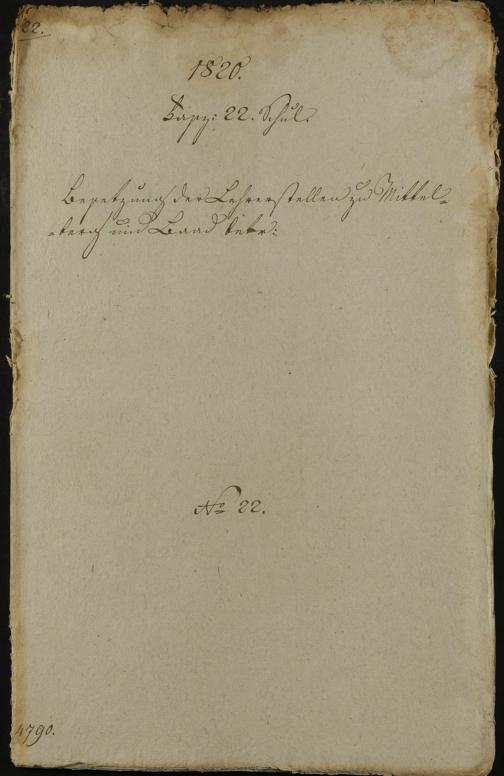 22.
1820.
Fasz: 22. Schul.
Besetzung der Lehrerstellen zu Mittel-
-berg und Baad betr:
No 22.
4790.